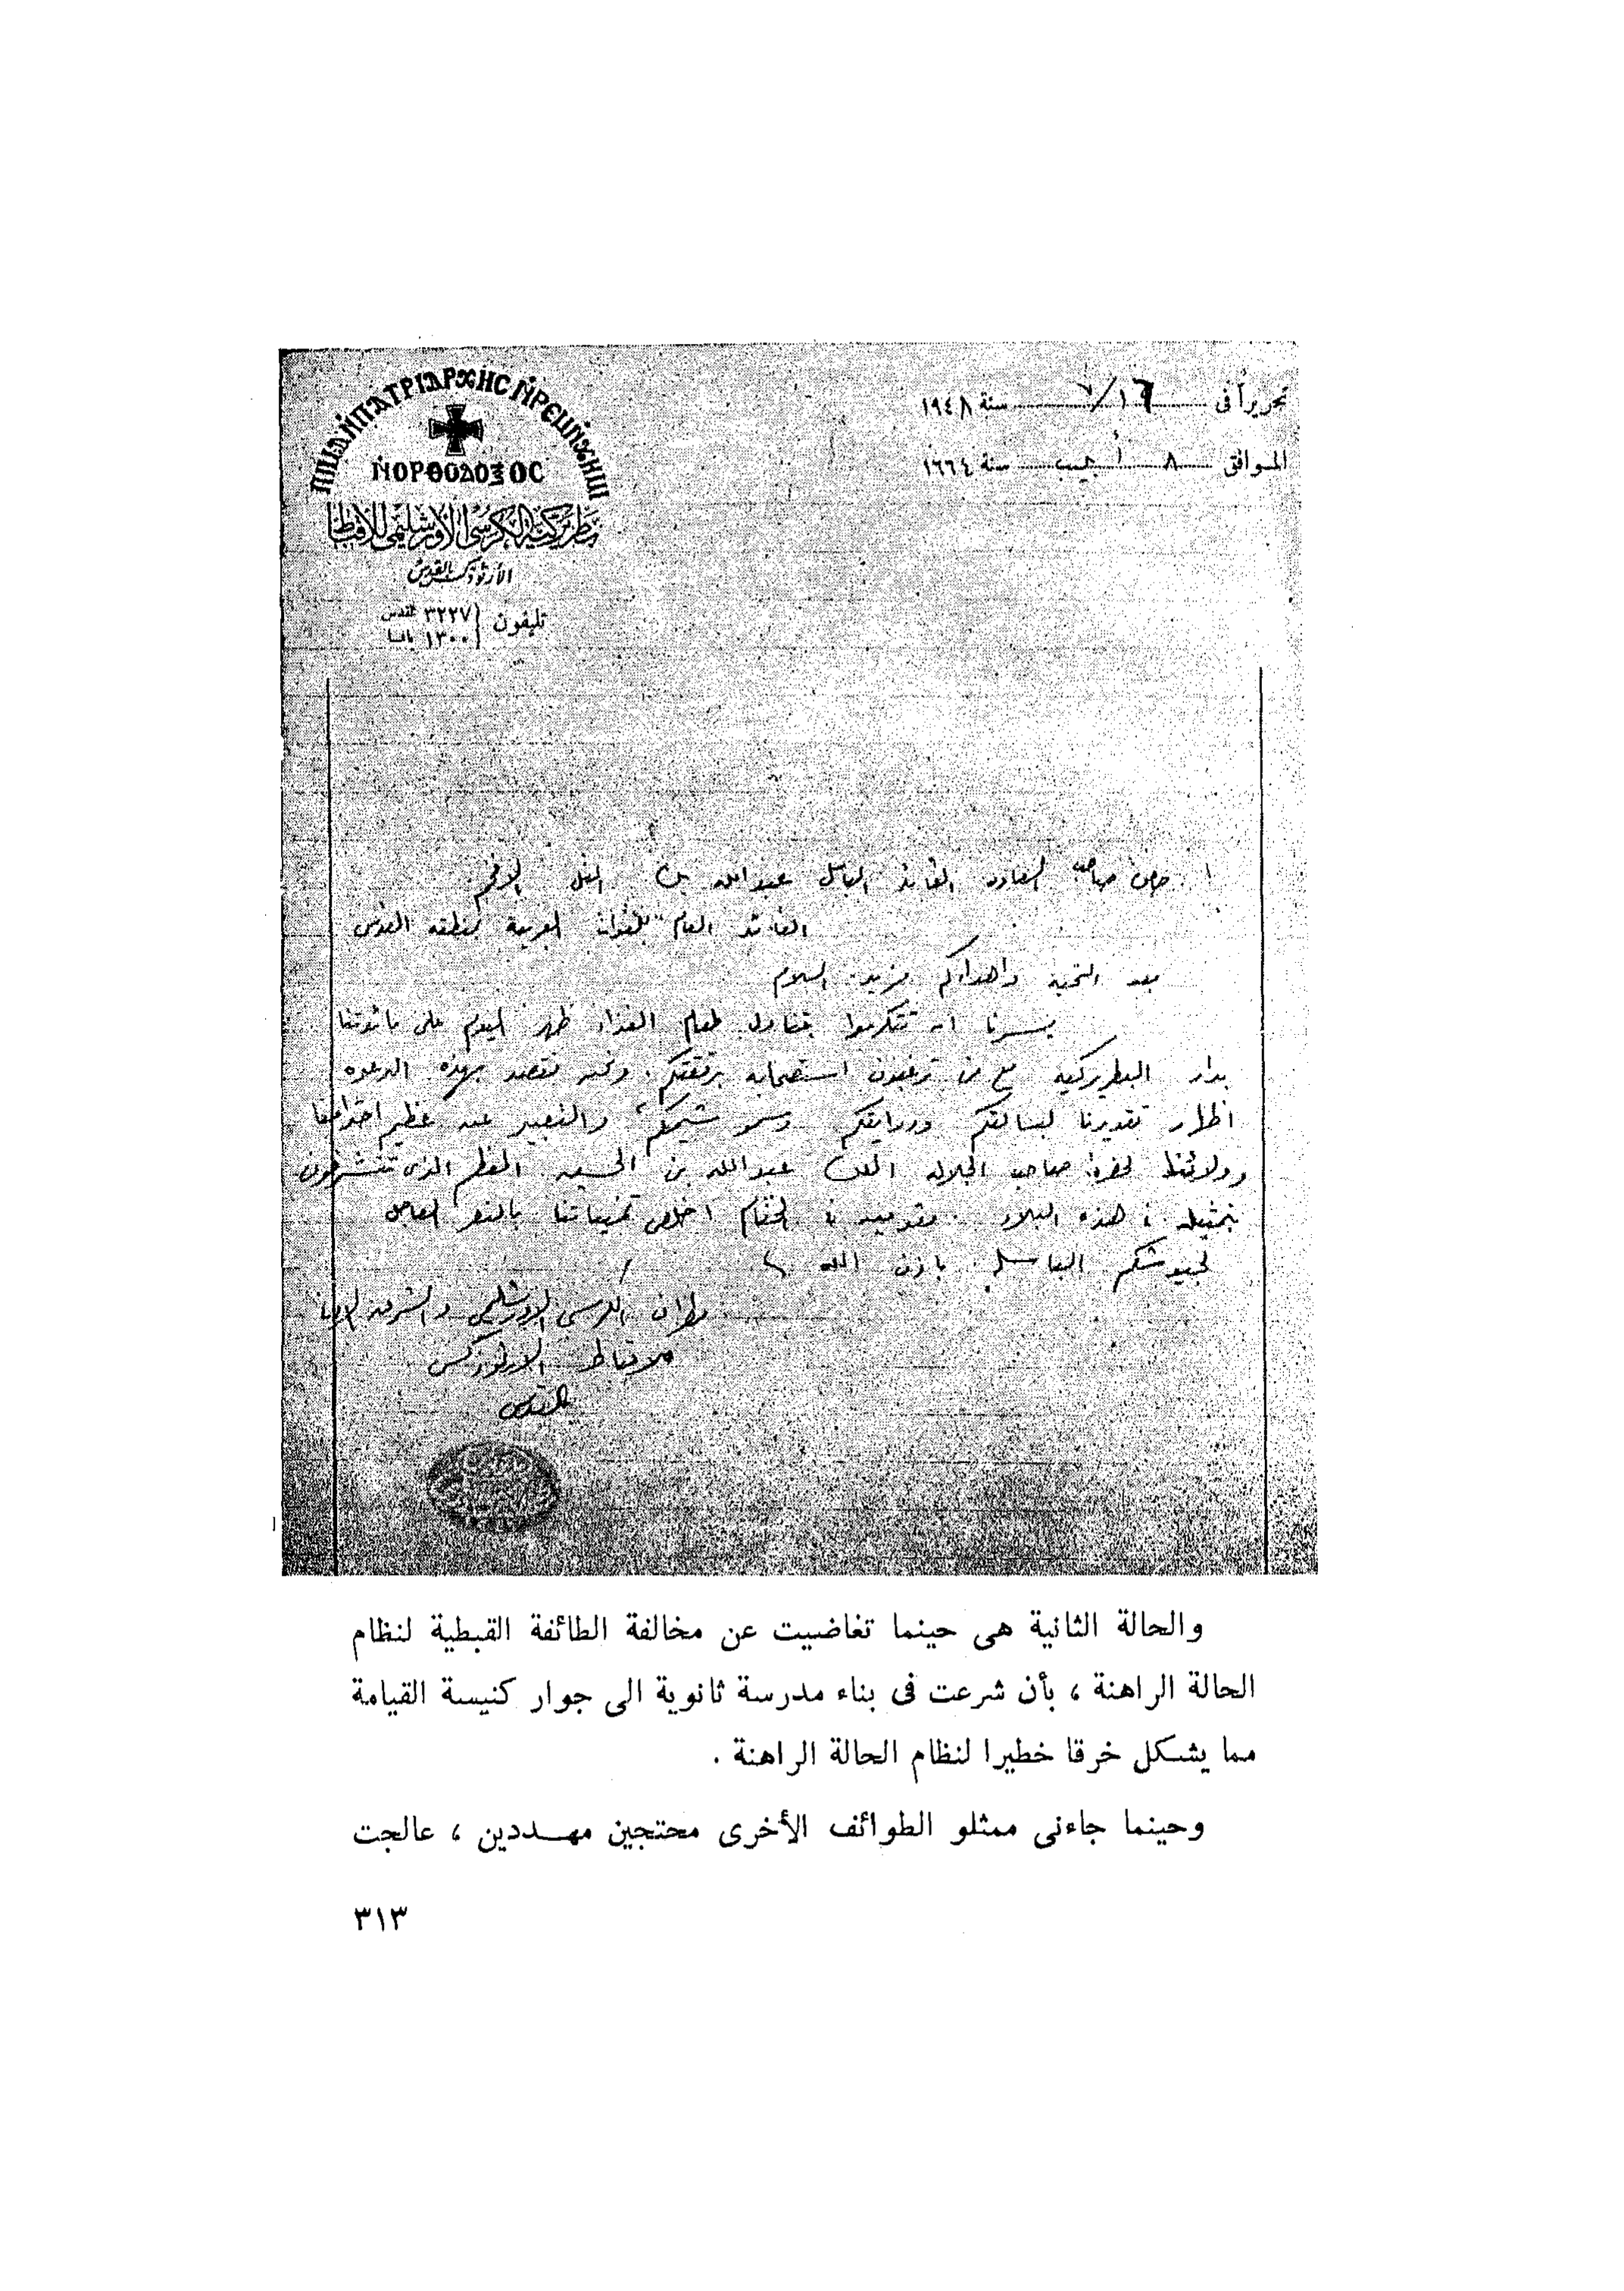 تحريراً فى ١٦/٧ سنة ١٩٤٨
الموافق ٨ أبيب سنة ١٦٦٤
ⲚⲞⲢⲐⲞⲆⲞⲜⲞⲤ
بطريركية الكرسى الأورشليمى للأقباط
الأرثوذكس بالقدس
تليفون ٣٢٢٧ القدس
١٣٠٠ يافا
حضرة صاحب السعادة القائد الباسل عبد الله بك التل الافخم
القائد العام للقوات العربية لمنطقة القدس
بعد التحية واهدائكم مزيد السلام
يسرنا ان تتكرموا بتناول طعام الغذاء ظهر اليوم على مائدتنا
بدار البطريركية مع من ترغبون استصحابه برفقتكم. ونحن نقصد بهذه الدعوه
اظهار تقديرنا لبسالتكم ودرايتكم وسمو شيمكم، والتعبير عن عظيم احترامنا
وولائنا لحضرة صاحب الجلالة الملك عبد الله بن الحسين المعظم الذى تتشرفون
بتمثيله فى هذه البلاد. مقدمين فى الختام اخلص تمنياتنا بالنصر العاجل
لجيوشكم الباسلة باذن الله
مطران الكرسى الاورشليمى والشرق الادنى
للاقباط الارثوذكس
بالقدس
والحالة الثانية هى حينما تغاضيت عن مخالفة الطائفة القبطية لنظام
الحالة الراهنة ، بأن شرعت فى بناء مدرسة ثانوية الى جوار كنيسة القيامة
مما يشكل خرقا خطيرا لنظام الحالة الراهنة .
وحينما جاءنى ممثلو الطوائف الأخرى محتجين مهــددين ، عالجت
٣١٣